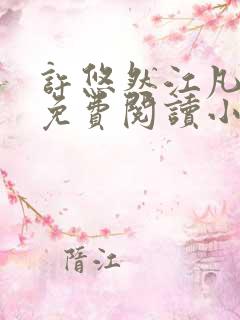 許悠然江凡
免費閱讀小
隋江